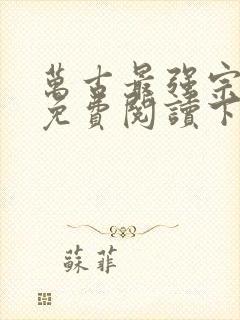 萬古最强宗
免費閱讀下
蘇菲